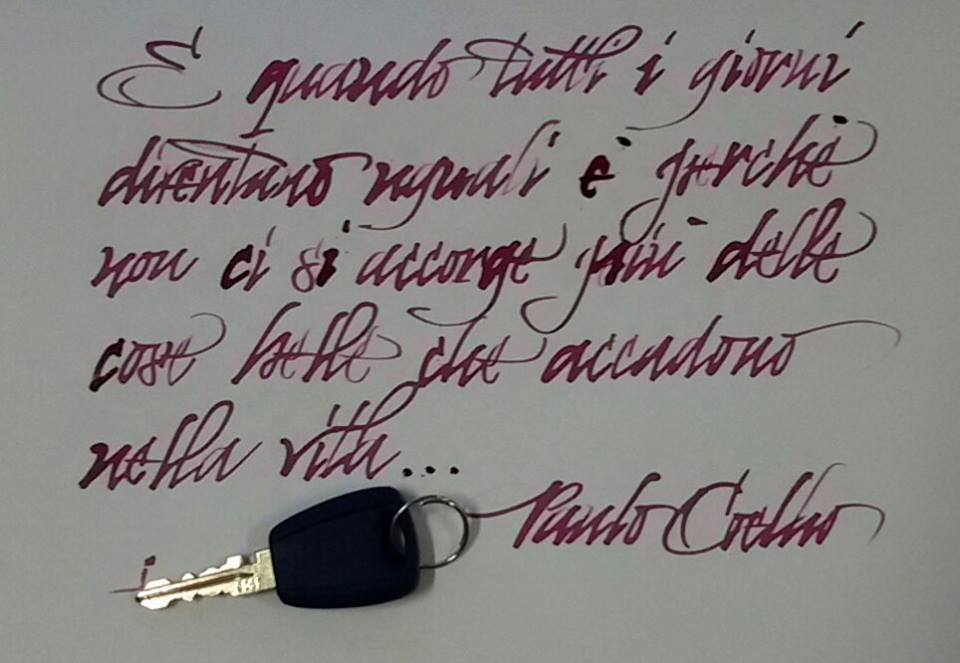 E quando tutti i giorni
diventano uguali è perchè
non ci si accorge più delle
cose belle che accadono
nella vita...
Paulo Coelho